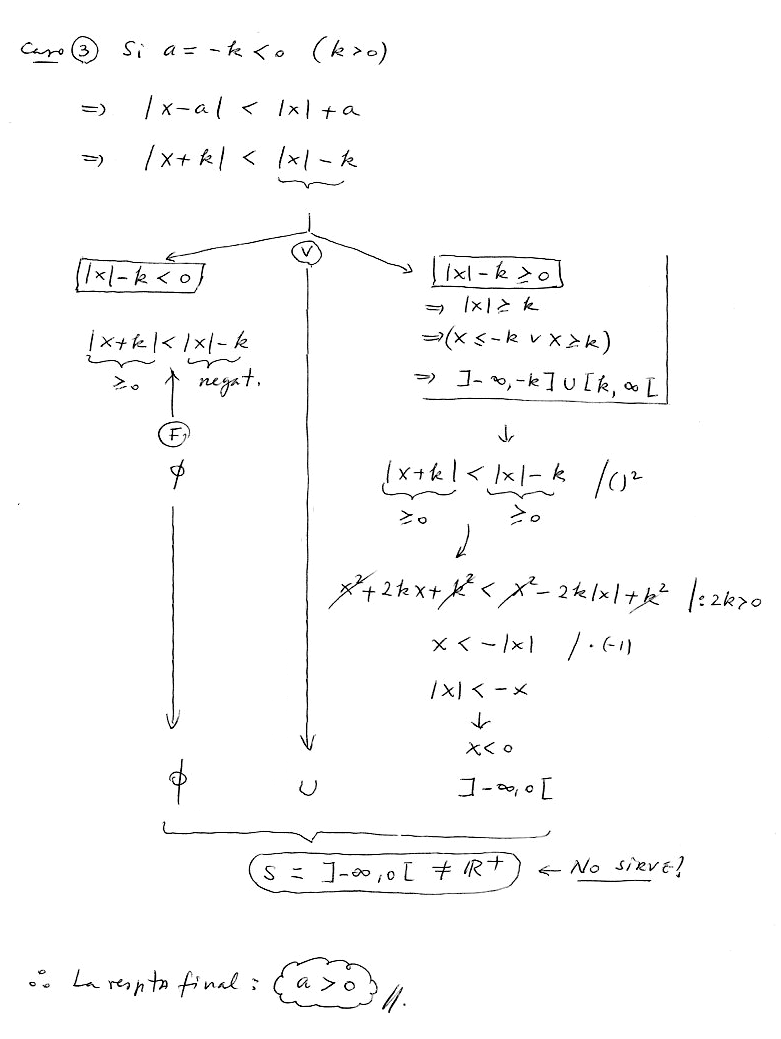 Caso ③ Si a = -k < 0 (k>0)
⇒ |x-a| < |x| + a
⇒ |x+k| < |x| - k
V
|x|-k < 0
|x+k| < |x|-k
≥0 negat.
F
ϕ
|x|-k ≥ 0
⇒ |x| ≥ k
⇒ (x ≤ -k ∨ x ≥ k)
⇒ ]-∞,-k] ∪ [k, ∞[
↓
|x+k| < |x|-k /()²
≥0 ≥0
x²+2kx+k² < x²-2k|x|+k² |:2k>0
x < -|x| /·(-1)
|x| < -x
↓
x<0
ϕ ∪ ]-∞,0[
S = ]-∞,0[ ≠ ℝ+ ← No sirve!
∴ La respta final : a > 0 //.